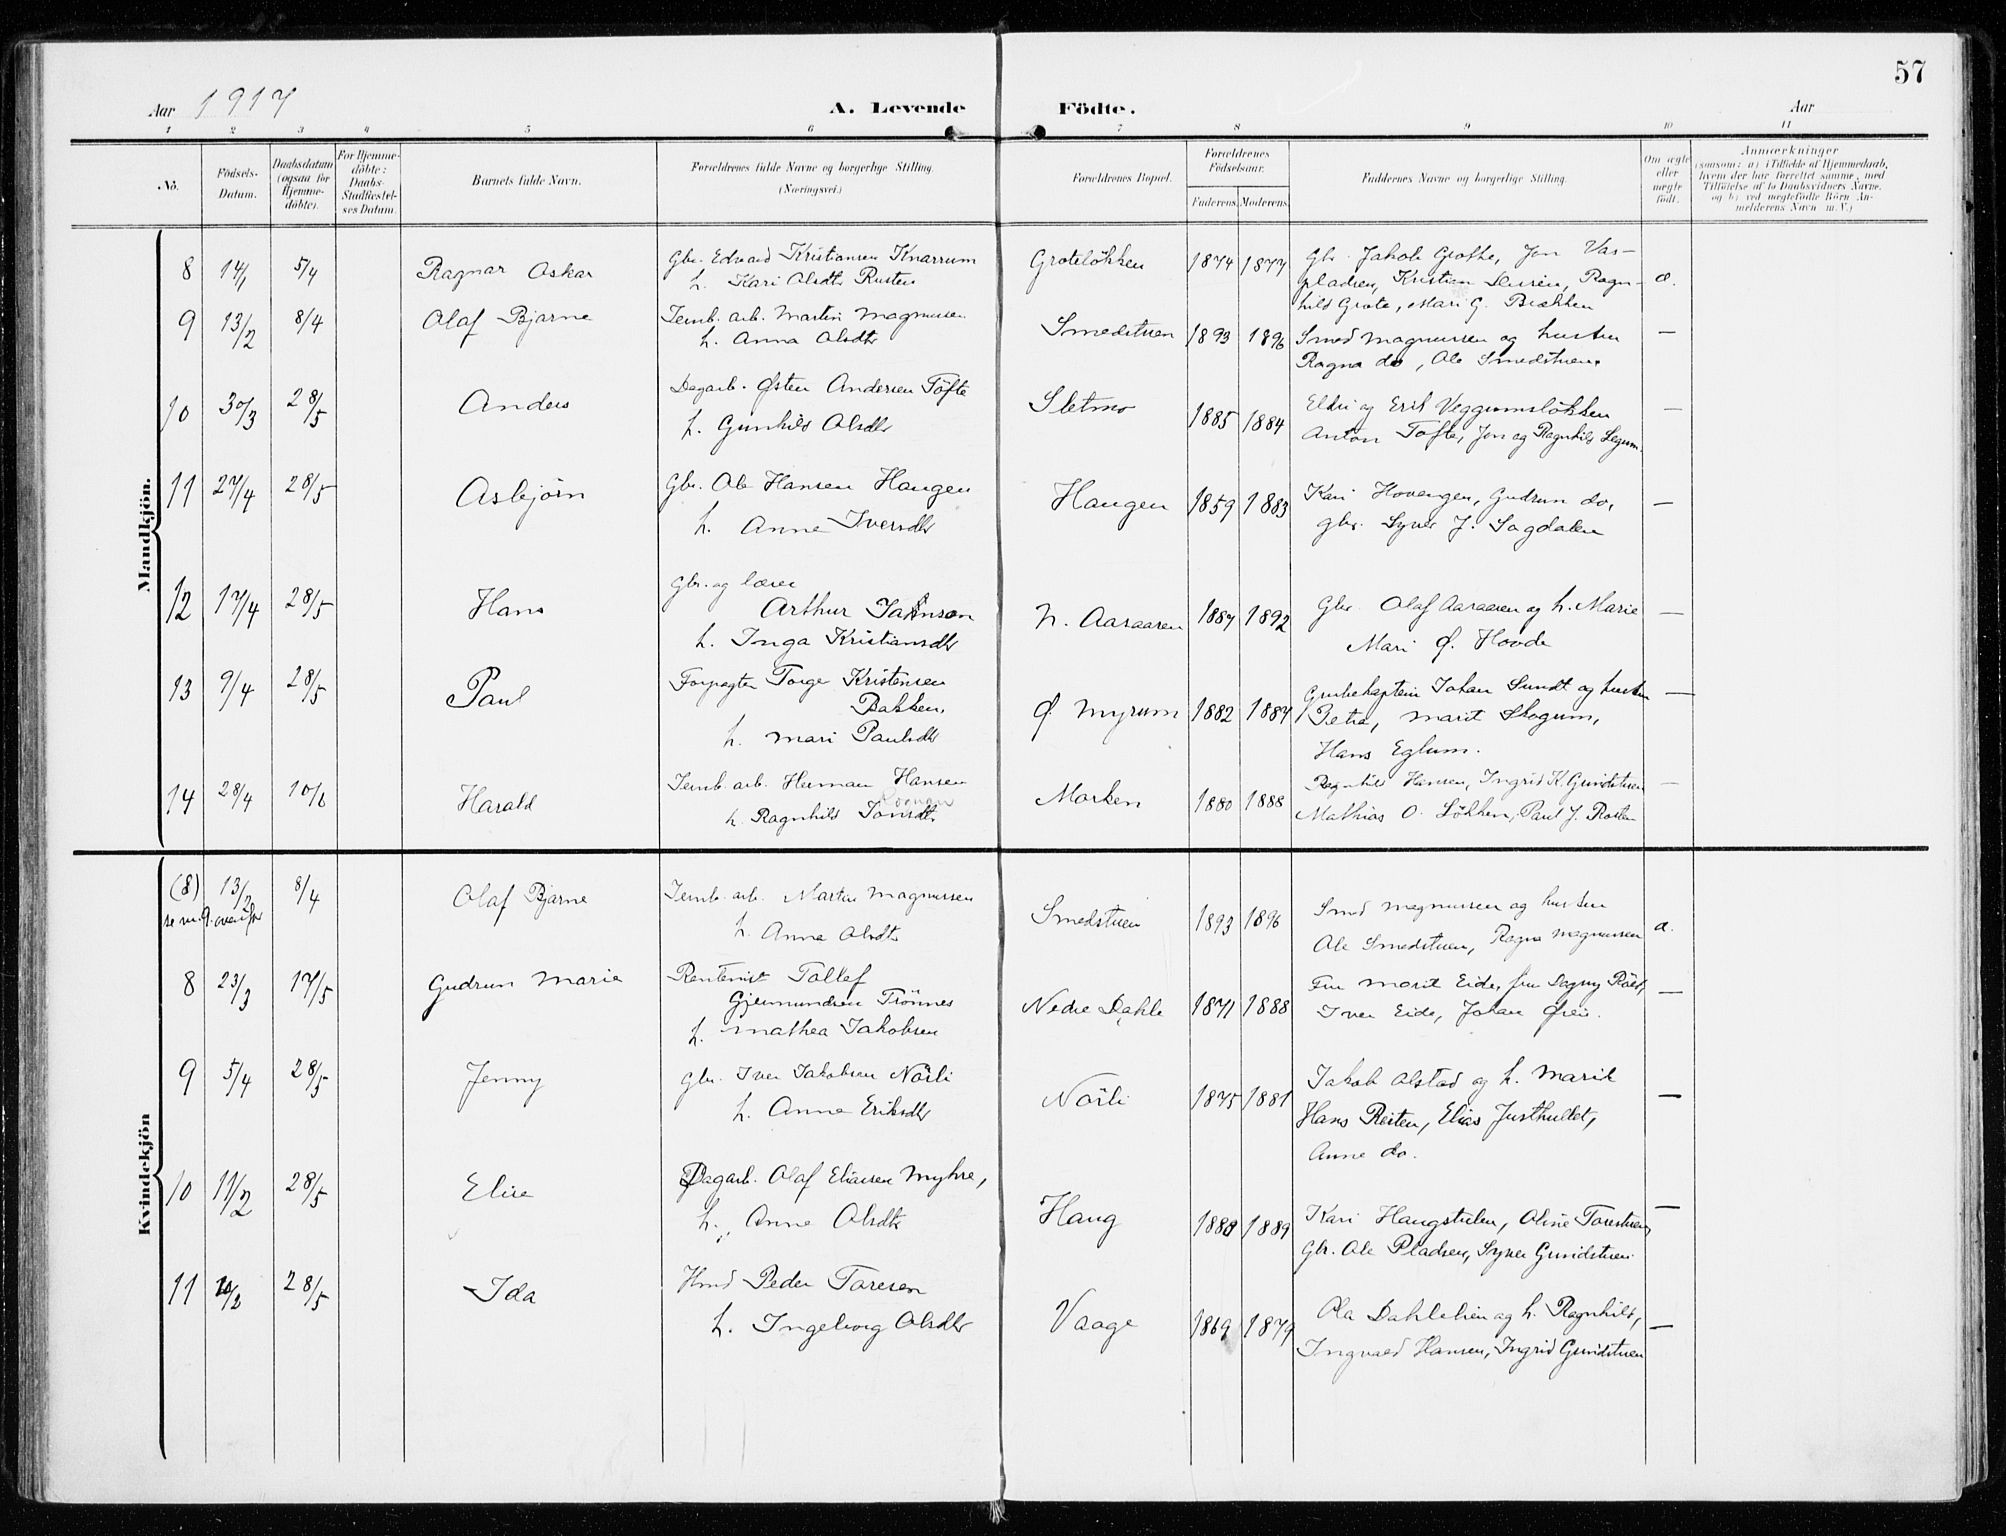 57
Aar 1917
A. Levende Födte.
Aar
1 2 3 4 5 6 7 8 9 10 11
No.
Födsels-Datum.
Daabsdatum (ogsaa for Hjemme-döbte).
For Hjemme-döbte: Daabs-Stadfæstel-ses Datum.
Barnets fulde Navn.
Forældrenes fulde Navne og borgerlige Stilling. (Næringsvei.)
Forældrenes Bopæl.
Forældrenes Födselsaar.
Faderens. Moderens.
Faddernes Navne og borgerlige Stilling.
Om ægte eller uægte födt.
Anmærkninger
(saasom: a) i Tilfælde af Hjemmedaab,
hvem der har forrettet samme, med
Tilföielse af to Daabsvidners Navne,
og b) ved uægtefödte Börn An-
melderens Navn m. V.)
Mandkjön.
8 14/1 5/4 Ragnar Oskar Gbr. Edvard Kristiansen Knarrum Groteløkken 1874 1877 Gbr. Jakob Grothe, Jon Vas-
h. Kari Olsdtr Rusten pladsen, Kristian, Ragn- æ.
hild Grote, Mari G. Brækken
9 13/2 8/4 Olaf Bjarne Jernb. arb. Martin Magnussen Smedstuen 1893 1896 Smed Magnussen og hustru —
h. Anna Olsdtr Ragna do, Ole Smedstuen.
10 30/3 28/5 Anders Dagarb. Østen Andersen Tøfte Sletmo 1885 1884 Eldri og Erik Veggumsløkken —
h. Gunhild Olsdtr Anton Tofte, Jon og Ragnhild Segum.
11 27/4 28/5 Asbjörn Gbr. Ole Hansen Haugen Haugen 1859 1883 Kari Hovengen, Gudrun do, —
h. Anne Iversdtr gbr. Syver J. Sagdalen
12 17/4 28/5 Hans Gbr. og lærer
Arthur Johnson N. Aaraaren 1887 1892 Gbr. Olaf Aaraaren og h. Marie —
h. Inga Kristiansdtr Mari Ø. Hovde
13 9/4 28/5 Paul Forpagter Torge Kristensen Grubekaptein Johan Sundt og hustru —
Bakken, Ø. Myrum 1882 1887 Petra, Marit Skogum,
h. Mari Paulsdtr Hans Eglum.
14 28/4 10/6 Harald Jernb. arb. Herman Hansen Morken 1880 1888 Ragnhild Hansen, Ingrid K. Gunstuen —
h. Ragnhild Jonsdtr. Mathias O. Løkken, Paul J. Rosten
Kvindekjön
(8) 13/2 8/4 Olaf Bjarne Jernb. arb. Martin Magnussen Smedstuen 1893 1896 Smed Magnussen og hustru
se nr. 9. ovenfor h. Anna Olsdtr Ole Smedstuen, Ragna Magnussen æ.
8 23/3 17/5 Gudrun Marie Rentenist Tollef
Gjermundsen Trönnes Nedre Dahle 1871 1888 Fru Marit Eide, fru Dagny Röed, —
h. Mathea Jakobsen Iver Eide, Johan Øren.
9 5/4 28/5 Jenny Gbr. Iver Jakobsen Nörli Nörli 1875 1881 Jakob Olstad og h. Marit —
h. Anne Eriksdtr Hans Reiten, Elias Justhultet,
Anne do.
10 11/2 28/5 Elise Dagarb. Olaf Eliassen Myhre, Haug 1880 1889 Kari Haugstulen, Oline Torestuen, —
h. Anne Olsdtr Gbr. Ole Pladsen, Syver Gunstuen.
11 10/2 28/5 Ida Hmd Peder Toresen Vaage 1869 1879 Ola Dahlelien og h. Ragnhild, —
h. Ingeborg Olsdtr Ingvald Hansen, Ingrid Gunstuen